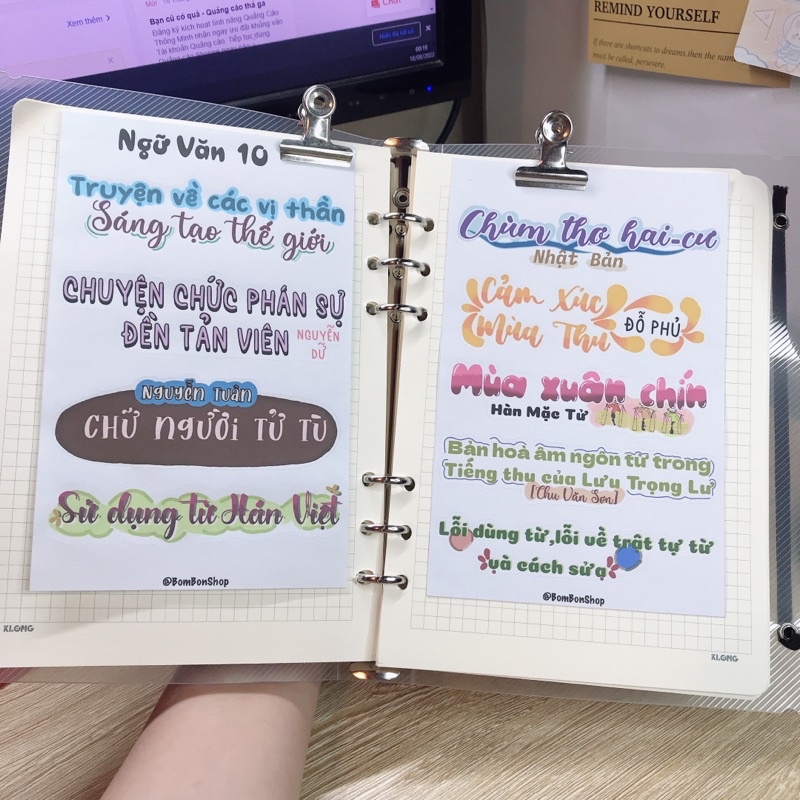 Xem thêm >
Mới
Bạn cũ có quà - Quảng cáo thả ga
Đăng ký kích hoạt tính năng Quảng Cáo
Thông Minh nhận ngay ưu đãi khủng vào
Tài khoản Quảng cáo. Tiếp tục dùng
Chat
00:19
18/08/2022
REMIND YOURSELF
If there are shortcuts to dreams,then the name
must be called. persevere.
Ngữ Văn 10
Truyện về các vị thần
Sáng tạo thế giới
CHUYỆN CHỨC PHÁN SỰ
ĐỀN TẢN VIÊN
NGUYỄN
DỮ
Nguyễn Tuân
CHỮ NGƯỜI TỬ TÙ
Sử dụng từ Hán Việt
@BomBonShop
KLONG
Chùm thơ hai-cư
Nhật Bản
Cảm Xúc
Mùa Thu
ĐỖ PHỦ
Mùa xuân chín
Hàn Mặc Tử
Bản hoà âm ngôn từ trong
Tiếng thu của Lưu Trọng Lư
[Chu Văn Sơn]
Lỗi dùng từ,lỗi về trật tự từ
và cách sửa
@BomBonShop
KLONG